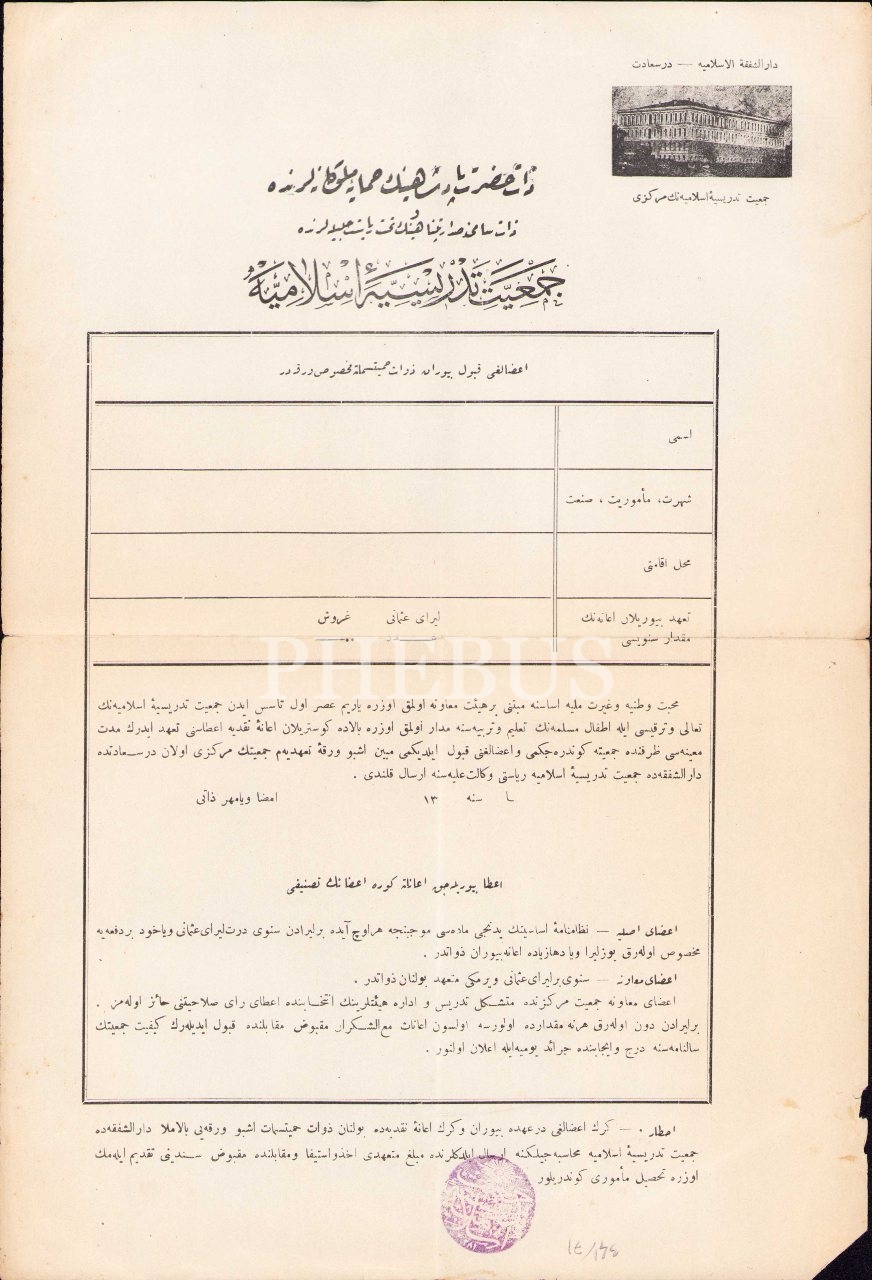 دار الشفقة الاسلامیه — درسعادت
جمعیت تدریسیۀ اسلامیه‌نك مركزی
ذات حضرت پادشاهینك حمایۀ ملوكانه‌لرنده
و
ذات سامئ صدارتپناهینك تحت ریاست جلیله‌لرنده
جمعیت تدریسیۀ اسلامیه
اعضالغی قبول بیوران ذوات حمیتسماته مخصوص ورقه‌در
اسمی
شهرت، مأموریت ، صنعت
محل اقامتی
تعهد بیوریلان اعانه‌نك مقدار سنویسی
لیرای عثمانی غروش
PHEBUS
محبت وطنیه و غیرت ملیه اساسنه مبتنی بر هیئت معاونه اولمق اوزره یاریم عصر اول تاسس ایدن جمعیت تدریسیۀ اسلامیه‌نك
تعالی و ترقیسی ایله اطفال مسلمه‌نك تعلیم و تربیه‌سنه مدار اولمق اوزره بالاده كوستریلان اعانۀ نقدیه اعطاسنی تعهد ایدرك مدت
معینه‌سی ظرفنده جمعیته كوندره‌جكمی و اعضالغنی قبول ایلدیكمی مبین اشبو ورقۀ تعهدیه‌م جمعیتك مركزی اولان درسعادتده
دارالشفقه‌ده جمعیت تدریسیۀ اسلامیه ریاستی وكالت علیه‌سنه ارسال قلندی .
سنه ١٣ امضا ویا مهر ذاتی
اعطا بیوریله‌جق اعاناته كوره اعضانك تصنیفی
اعضای اصلیه — نظامنامۀ اساسینك یدنجی ماده‌سی موجبنجه هر اوچ آیده بر لیرادن سنوی درت لیرای عثمانی ویاخود بر دفعه‌یه
مخصوص اوله‌رق یوز لیرا ویا دها زیاده اعانه بیوران ذواتدر .
اعضای معاونه — سنوی بر لیرای عثمانی ویرمكی متعهد بولنان ذواتدر .
اعضای معاونه جمعیت مركزنده متشكل تدریس و اداره هیئتلرینك انتخابنده اعطای رای صلاحیتنی حائز اوله‌مز .
بر لیرادن دون اوله‌رق هر نه مقدارده اولورسه اولسون اعانات مع التشكر ار مقبوض مقابلنده قبول ایدیله‌رك كیفیت جمعیتك
سالنامه‌سنه درج و ایجابنده جرائد یومیه ایله اعلان اولنور .
اخطار . — كرك اعضالغی درعهده بیوران و كرك اعانۀ نقدیه‌ده بولنان ذوات حمیتسمات اشبو ورقه‌یی بالاملا دارالشفقه‌ده
جمعیت تدریسیۀ اسلامیه محاسبه‌جیلكنه ارسال ایلدكلرنده مبلغ متعهدی اخذ و استیفا و مقابلنده مقبوض سندینی تقدیم ایله‌مك
اوزره تحصیل مأموری كوندریلور
341/71